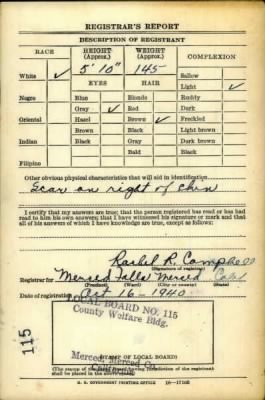 REGISTRAR'S REPORT
DESCRIPTION OF REGISTRANT
RACE HEIGHT (Approx.) WEIGHT (Approx.) COMPLEXION
White ✓ 5' 10" 145 Sallow
EYES HAIR Light ✓
Negro Blue Blonde Ruddy
Gray ✓ Red Dark
Oriental Hazel Brown ✓ Freckled
Brown Black Light brown
Indian Black Gray Dark brown
Bald Black
Filipino
Other obvious physical characteristics that will aid in identification
Scar on right of chin
I certify that my answers are true; that the person registered has read or has had
read to him his own answers; that I have witnessed his signature or mark and that
all of his answers of which I have knowledge are true, except as follows:
Rachel R. Campbell
(Signature of registrar)
Registrar for Merced Falls Merced Calif
(Precinct) (Ward) (City or county) (State)
Date of registration Oct 16 - 1940
LOCAL BOARD NO. 115
County Welfare Bldg.
Merced, Merced Co.
115
(STAMP OF LOCAL BOARD)
(The stamp of the Local Board having jurisdiction of the registrant
shall be placed in the above space.)
U. S. GOVERNMENT PRINTING OFFICE 16-17105